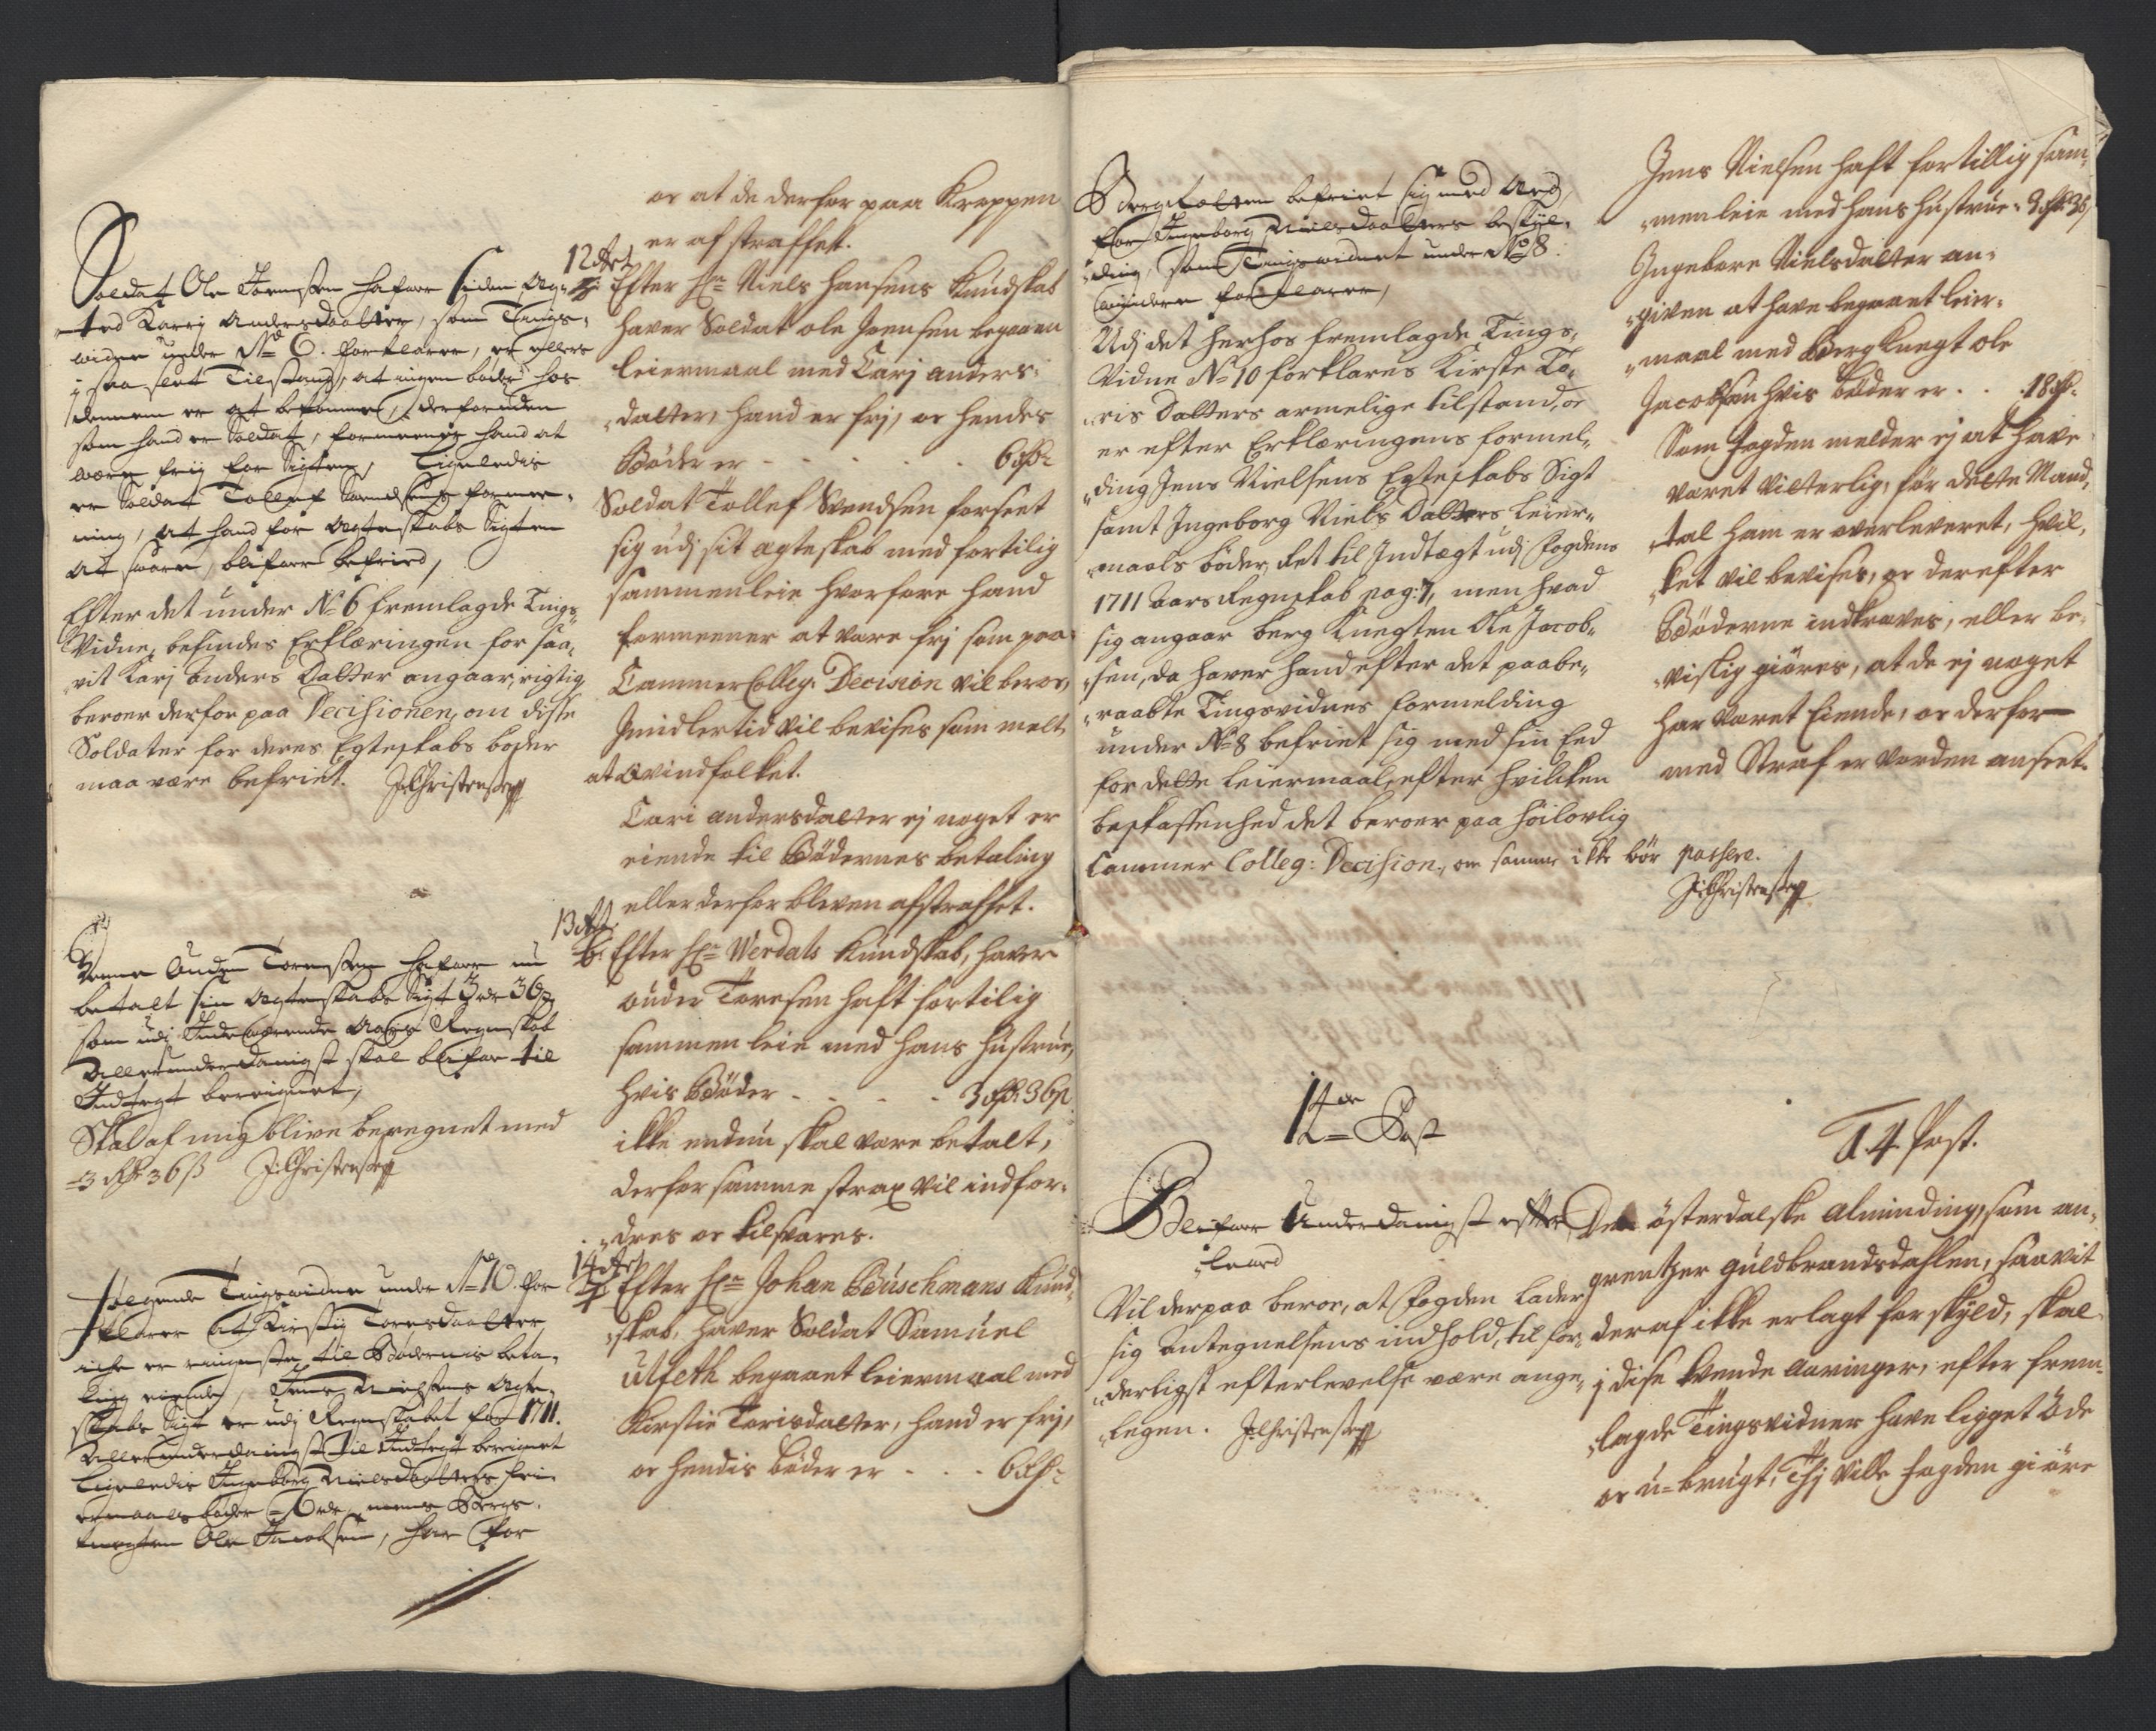 Soldat Ole Joensen hafuer siden Æg-
ted Karrj Andersdaatter, som Tings-
widne under No 6. forklarer, er ellers
j saa slet Tilstand, at ingen bøder hos
dennem er at bekomme, derforuden
som hand er Soldat, formeener hand at
være frij for Sigten, Ligeledis
er Soldat Tollef Svendsens formee-
ning, at hand for Ægteskabs Sigten
at svare, blifuer befried,
Efter det under No 6 fremlagde Tings-
Vidne, befindes Erklæringen for saa-
vit Karj Anders Datter angaar, rigtig,
beroer derfor paa Decisionen, om disse
Soldater for deres Egteskabs bøder
maa være befriet. J:Christensen
Auden Torensen hafuer nu
betalt sin Ægteskabs Sigt 3 rdr 36 s
som udj Indewærende Aars Regenskab
Allerunderdanigst skal blifue til
Indtegt beregnet,
Skal af mig blive beregnet med
3 Rdr 36 s J:Christensen
Følgende Tingswidne under No 10. for-
klarer at Kirstj Toresdaatter
icke er eigenste til Bødernis beta-
ling eiende, Jens Nielsens Ægte-
skabs Sigt er udj Regenskabet for 1711.
Allerunderdanigst til Indtegt beregnet
Ligeledis Ingeborg Nielsdaatters Lei-
ermaals bøder 6 rdr, mens Bergs-
knegten Ole Jacobsen, har for
or at de derfor paa Kroppen
er afstraffet.
12 Art
Efter Hr Niels Hansens Kundskab
haver Soldat ole Joensen begaaen
leiermaal med Carj anders-
datter, hand er frj, or hendes
Bøder er - - - - - 6 Rdr
Soldat Tollef Svendsen forseet
sig udj sit ægteskab med fortilig
sammenleie hvorfore hand
formeener at være frj som paa
CammerColleg: Decision vil beroe,
Imidlertid vil bevises som melt
at qvindfolket.
Cari andersdatter ej noget er
eiende til Bødernes betaling
eller derfor bleven afstraffet.
13 Art
Efter Hr Werdals Kundskab, haver
ouder Toresen haft fortilig
sammenleie med hans Hustrue,
hvis Bøder - - - - 3 Rdr 36 s
ikke endnu skal være betalt,
derfor samme strax vil indfor-
dres or tilsvares.
14 Art
Efter Hr Johan Buschmans Kund-
skab, haver Soldat Samuel
Ulfeth begaaet leiermaal med
Kirstie Torisdatter, hand er frj,
or hendis bøder er - - - 6 Rdr
Bergefalten befriet sig med Æd
for Ingeborg Nielsdaatters beskyl-
ding, som Tingswidnet under No 8.
widere forklarer,
Udj det herhos fremlagde Tings-
Vidne No 10 forklares Kirste To-
ris Datters armelige tilstand, or
er efter Erklæringens formel-
ding Jens Nielsens Egteskabs Sigt
samt Ingeborg Niels Datters Leier-
maals bøder, ført til Indtægt udj Fogdens
1711 Aars Regnskab pag: 7, men hvad
sig angaar berg Knegten Ole Jacob-
sen, da haver hand efter det paabe-
raabte Tingsvidnes formelding
under No 8 befriet sig med sin Eed
for dette leiermaal, efter hvilken
beskaffenhed det beroer paa høilovlig
Cammer Colleg: Decision, om samme ikke bør passere.
J:Christensen
14de Post
Blifuer Underdanigst effter
leved
Vil derpaa beroe, at Fogden lader
sig Antegnelsens indhold, til for-
derligst efterlevelse være ange-
legen. J:Christensen
Jens Nielsen haft fortillig sam-
menleie med hans Hustrue - 3 Rdr 36 s
Ingebore Nielsdatter an-
given at have begaaet leier-
maal med BergKnegt ole
Jacobsen hvis bøder er - - 18 Rdr
Som fogden melder ej at have
været vitterlig, før dette Mand-
tal ham er overleveret, hvil-
ket vil bevises, or derefter
Bøderne indkræves, eller be-
vislig giøres, at de ej noget
har været Eiende, or derfor
med Straf er vorden anseet.
14. Post.
Den østerdalske Alminding, som an-
grentzer guldbrandsdahlen, saavit
deraf ikke erlagt for skyld, skal
j dise tvende aaringer, efter frem-
lagde Tingsvidner have ligget øde
or u-brugt. Thj ville fogden giøre